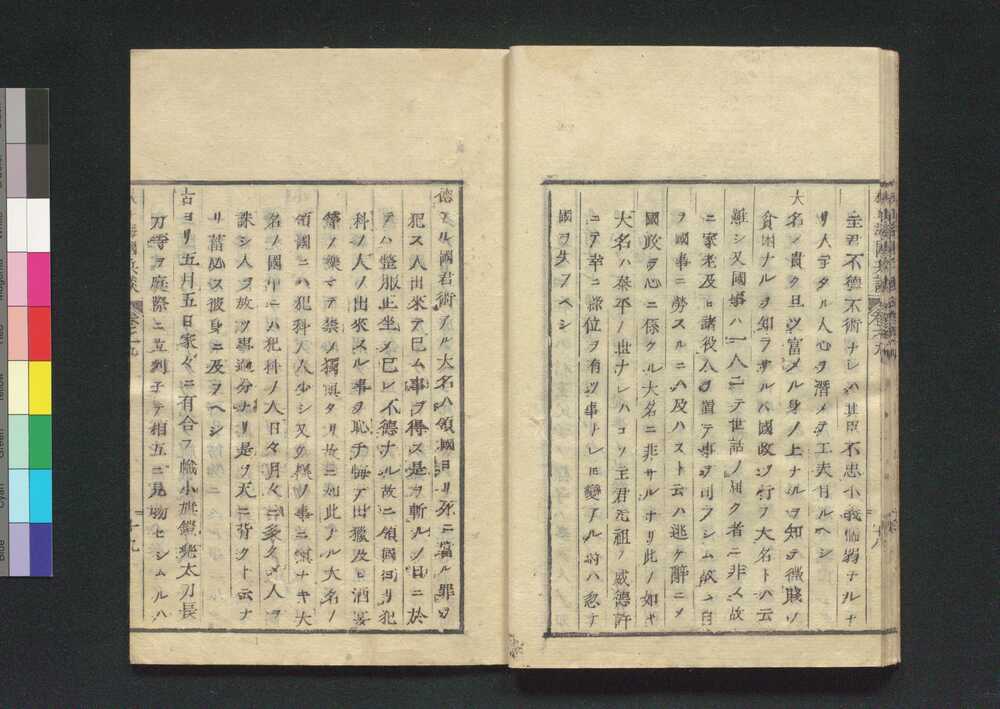 主君不徳不術ナレハ其臣不忠小我怖弱ナルナ
リ人宇タル人心ヲ潜メテ工夫有ルヘシ
大名ノ貴ク且ツ富メル身ノ上ナルヲ知テ微賤ノ
貧困ナルヲ知ラサルハ國政ヲ行フ大名トハ云
難シ又國事ハ一人ニテ世話ノ届ク者ニ非ス故
ニ家老及ヒ諸役人ヲ置テ事ヲ司ラシム故ニ自
ラ國事ニ勞スルニハ及ハスト云ハ逃ケ辭ニメ
國政ヲ心ニ係クル大名ニ非サルナリ此ノ如キ
大名ハ泰平ノ世ナレハコソ主君元祖ノ威徳許
ニテ幸ニ祿位ヲ有ツ事ナレ𪜈變アル時ハ忽チ
國ヲ失フヘシ
徳アル國君術アル大名ハ領國ヨリ死ニ當ル罪ヲ
犯ス人出來テ已ム事ヲ得ス是ヲ斬ルノ日ニ於
テハ整服正坐メ已レ不徳ナル故ニ領國ヨリ犯
科ノ人ノ出來スル事ヲ恥チ悔テ田獵及ヒ酒宴
等ノ樂マテ禁メ獨愼タリ故ニ如此アル大名ノ
領國ニハ犯科ノ人少シ又久様ノ事ニ愼ナキ大
名ノ國中ニハ犯科ノ人日々月々ニ多クメ人ヲ
誅シ人ヲ放ツ事過分ナリ是ヲ天ニ背クト云ナ
リ菑必ス彼身ニ及フヘシ
古ヨリ五月五日家々ニ有合フ幟小旗鎧兜太刀長
刀等ヲ庭際ニ立列子テ相互ニ見物セシムルハ